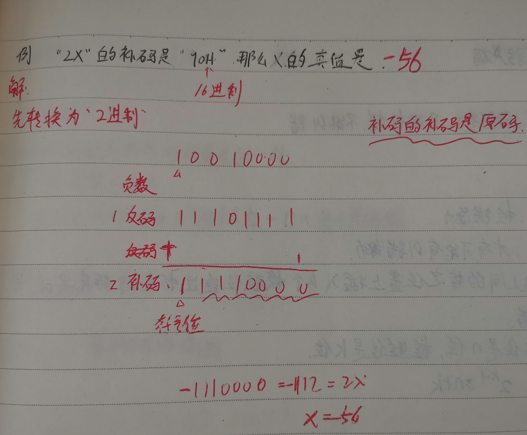 例 "2X"的补码是"90H" 那么X的真值是 -56
16进制
解:
先转换为"2进制"
补码的补码是原码.
10010000
负数
1 反码 11101111
反码+ 1
2 补码: 11110000
符号位
-1110000=-112=2x
x=-56